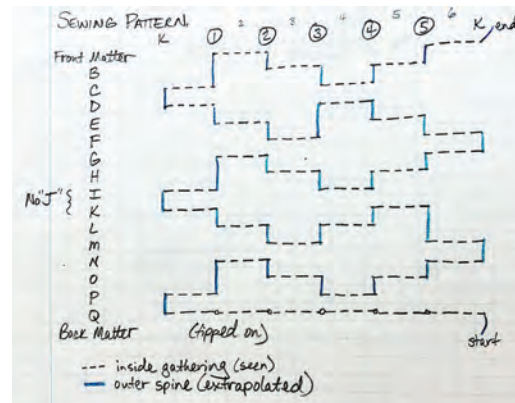 SEWING PATTERN
K ① 2 ② 3 ③ 4 ④ 5 ⑤ 6 K, end
Front Matter
B
C
D
E
F
G
H
I
No "J" {
K
L
M
N
O
P
Q
Back Matter (tipped on) start
--- inside gathering (seen)
— outer spine (extrapolated)